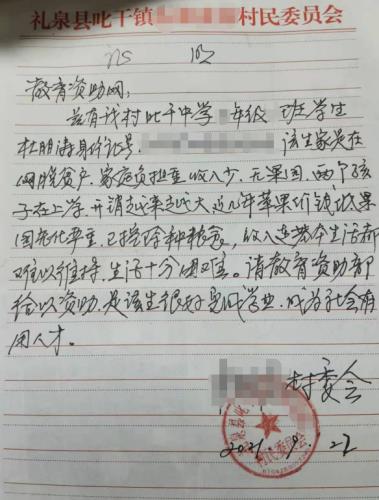 礼泉县叱干镇 村民委员会
证 明
教育资助网:
兹有我村叱干中学 年级 班学生
杜朋涛身份证号 该生家是在
网脱贫户,家庭负担重,收入少,无果园,两个孩
子在上学,开销越来越大,近几年苹果价钱低,果
园老化严重,已挖除种粮食,收入连基本生活都
难以维持,生活十分困难。请教育资助部
给以资助,是该生很好完成学业,成为社会有
用人才。
村委会
2021. 9. 22
礼泉县叱
村民委员会